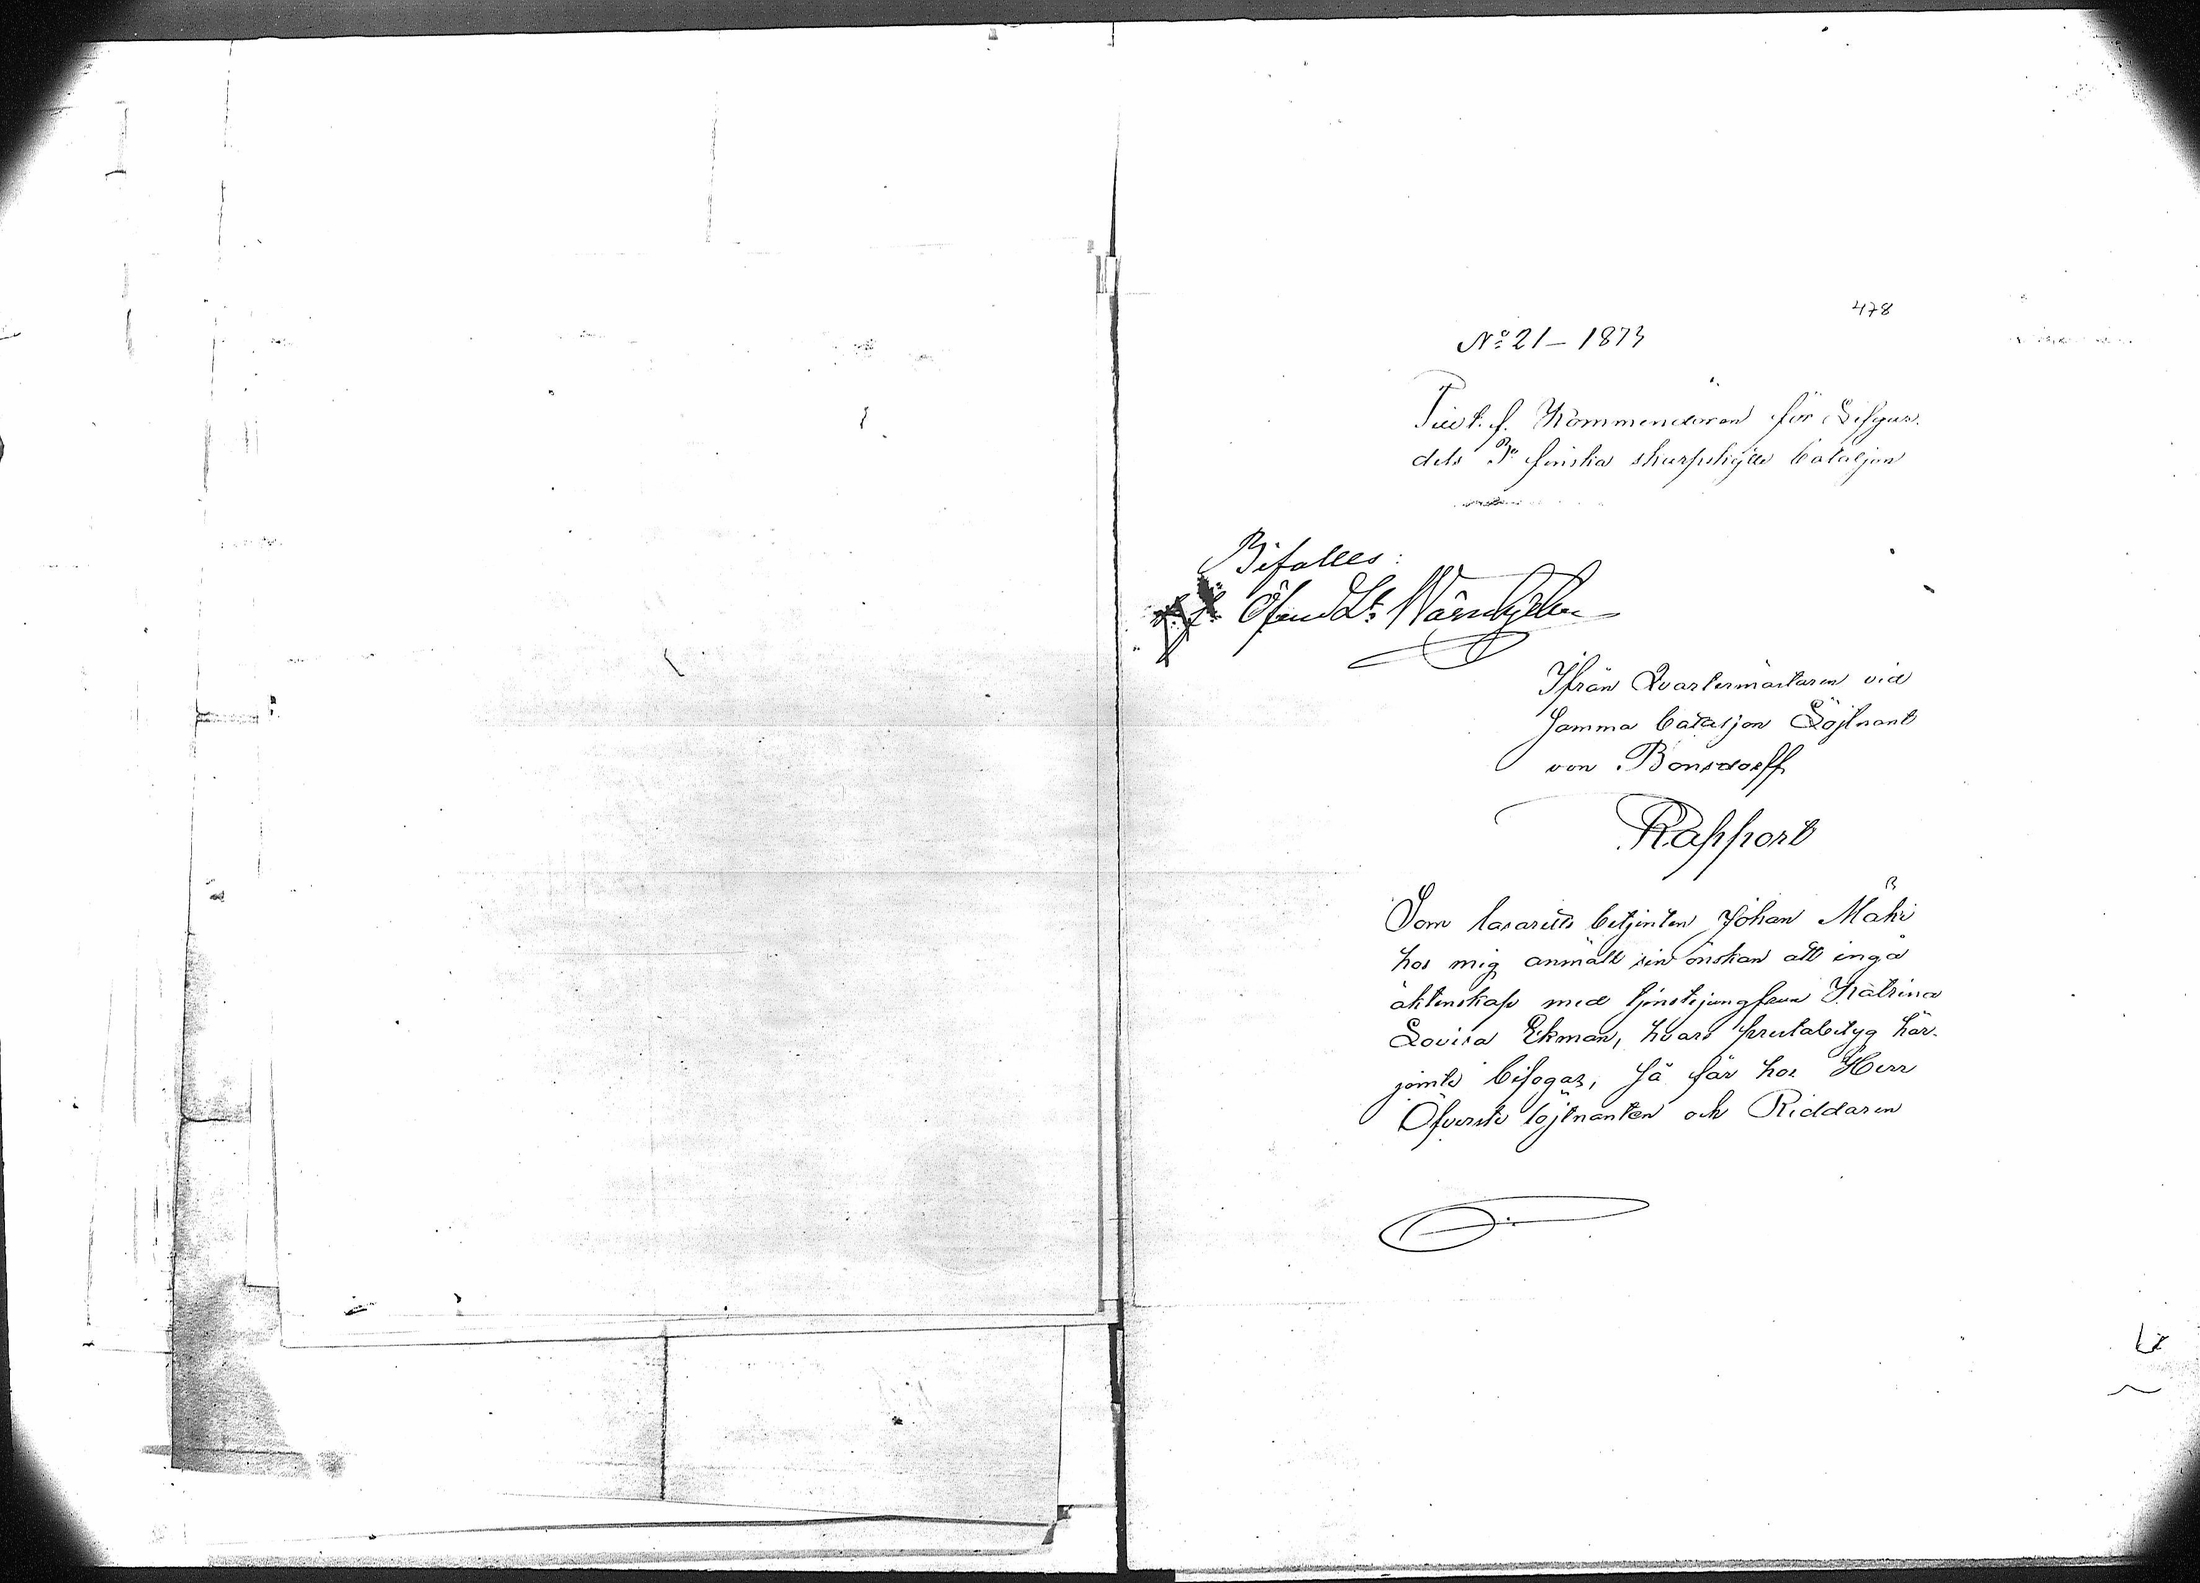 478
No 21 – 1873
Tient. f. Kommendören för Lifgar-
dets 3e finska skarpskytte bataljon
Bifalles:
Öfverste Lt:
Ifrån Qvartermästaren vid
Samma bataljon Löjtnant
von Bonsdorff
Rapport
Som lasaretts betjenten Johan Mähr
hos mig anmält sin önskan att ingå
äktenskap med tjenstejungfrun Katrina
Lovisa Ekman, hvars prestabetyg här-
jemte bifogas, Så får hos Herr
Öfverste löjtnanten och Riddaren